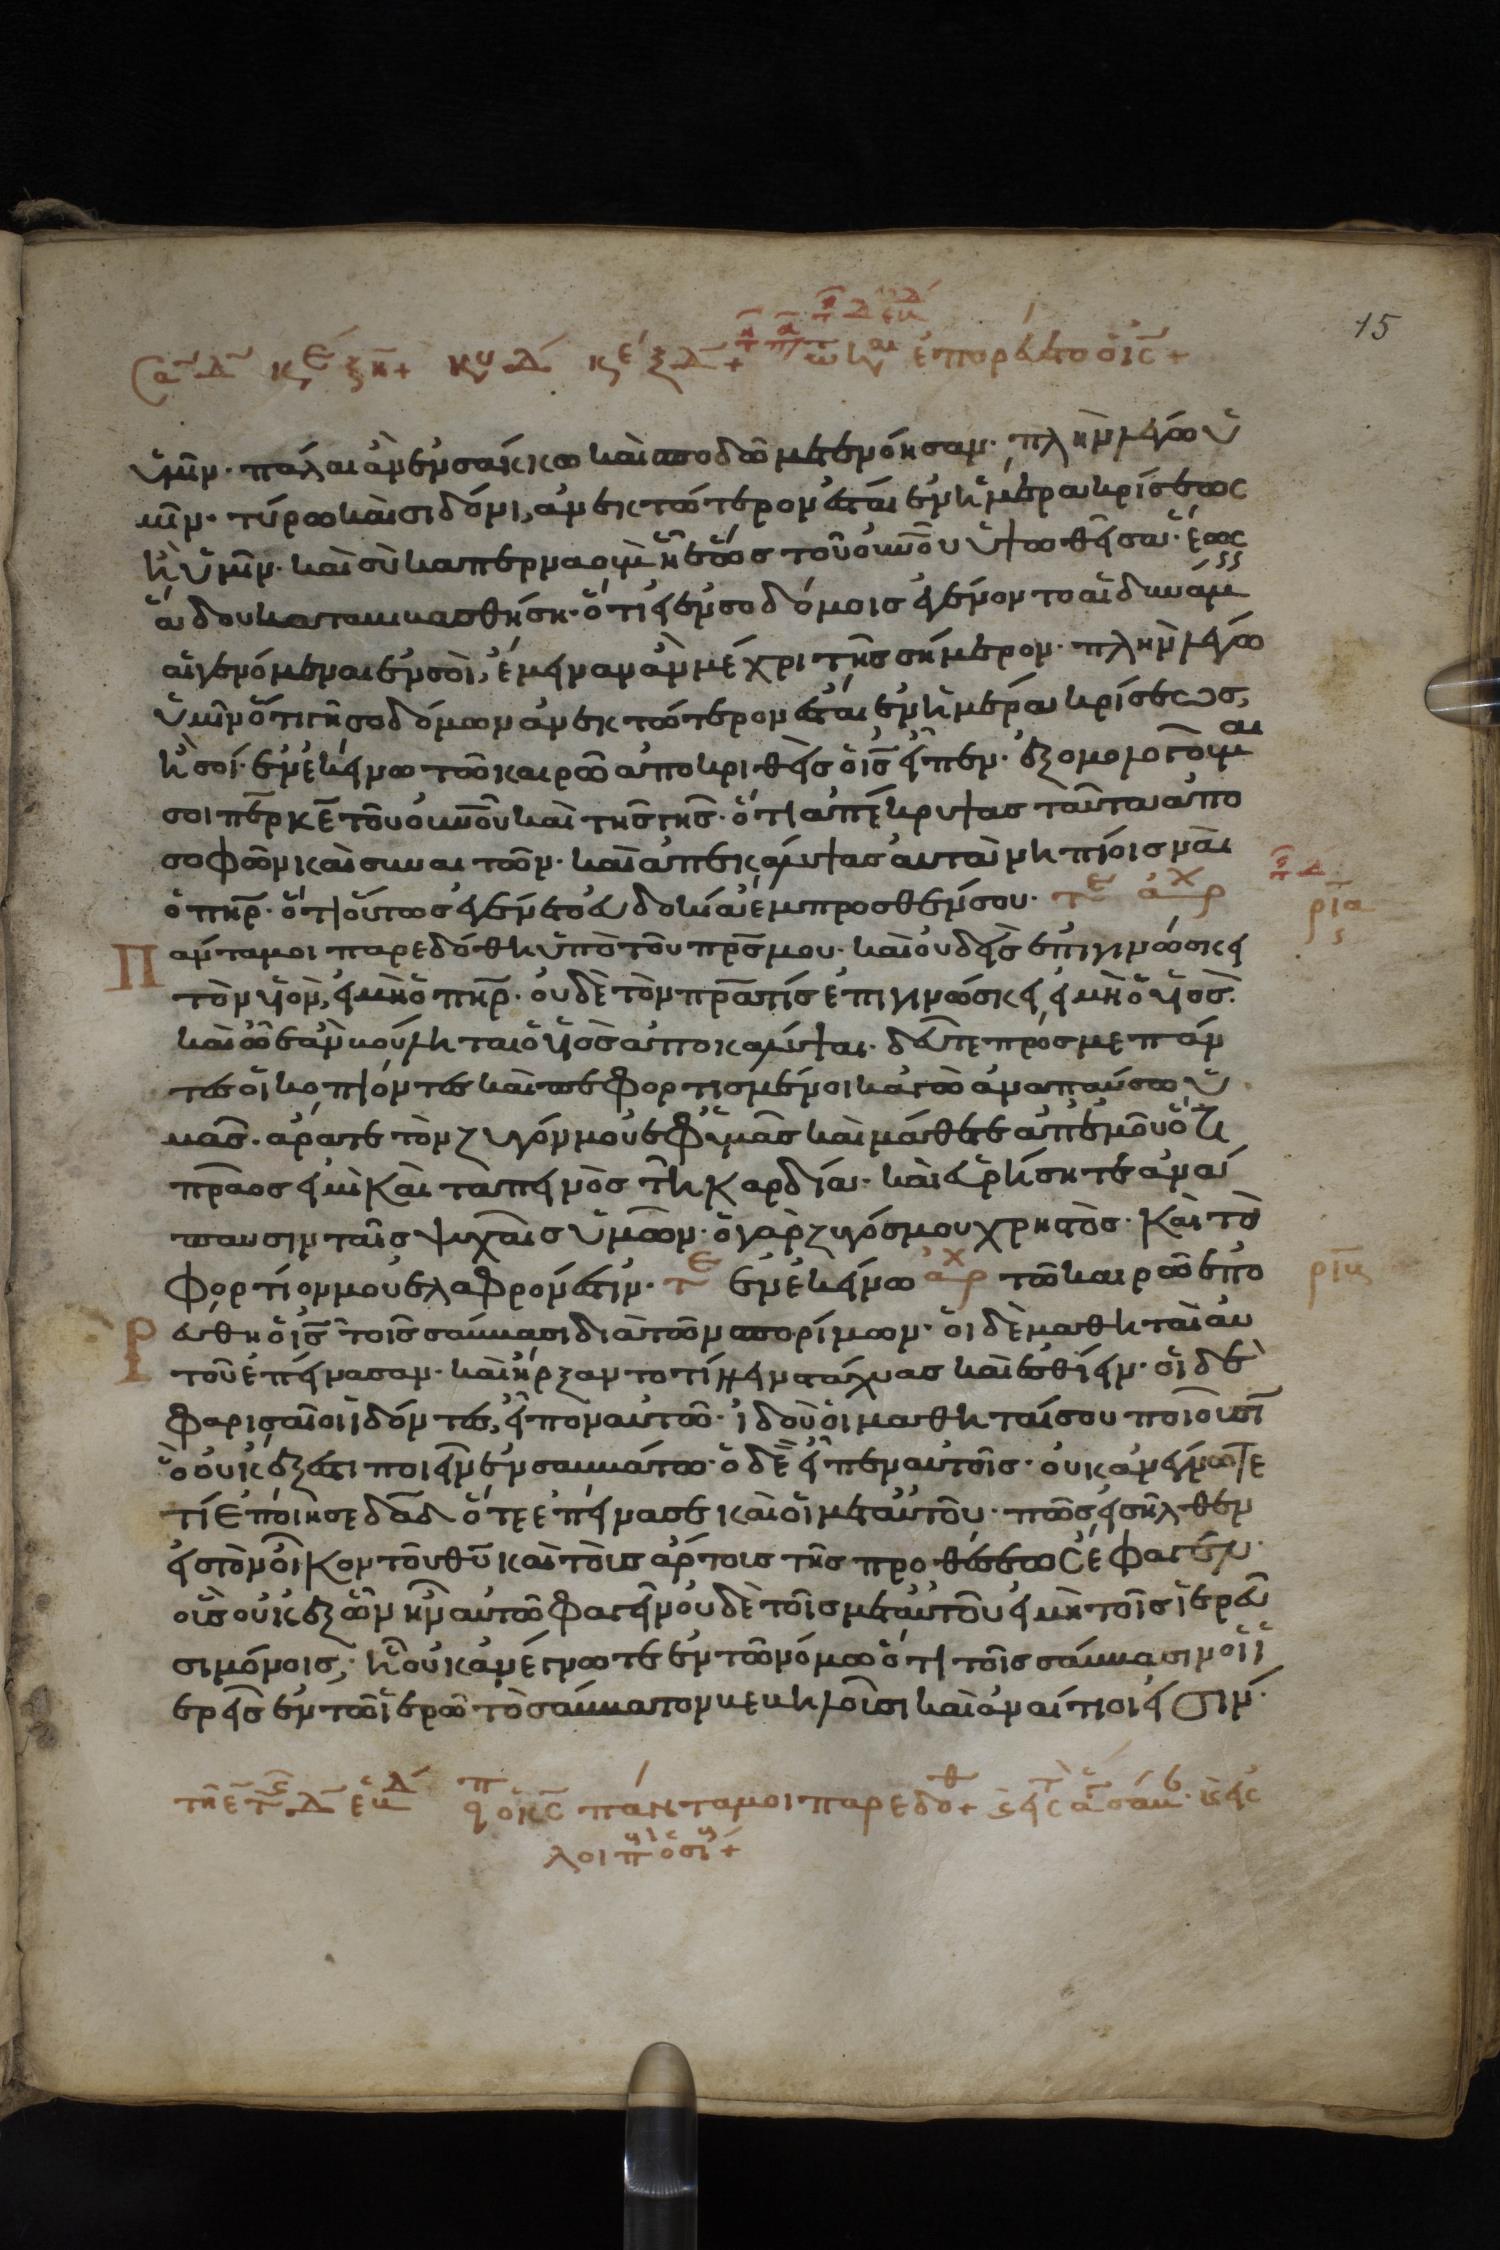 15
ἐπορεύετο ὁ ις +
ὑμῖν· πάλαι ἂν ἐν σάκκω καὶ σποδῶ μετενόησαν· πλὴν λέγω ὑ
μῖν· τύρω καὶ σιδόνι, ἀνεκτώτερον ἔσται ἐν ἡμέρα κρίσεως
ἢ ὑμῖν· καὶ σὺ καπερναοὺμ ἡ ἕως τοῦ οὐνου ὑψωθεῖσα· ἕως
ἅδου καταβιβασθήση· ὅτι εἰ ἐν σοδόμοις ἐγένοντο αἱ δυνάμεις
αἱ γενόμεναι ἐν σοὶ, ἔμειναν ἂν μέχρι τῆς σήμερον· πλὴν λέγω
ὑμῖν ὅτι γῆ σοδόμων ἀνεκτώτερον ἔσται ἐν ἡμέρα κρίσεως,
ἢ σοί· ἐν ἐκείνω τῶ καιρῶ ἀποκριθεὶς ὁ ις εἶπεν· ἐξομολογοῦμαι
σοι περ κε τοῦ οὐνου καὶ τῆς γῆς· ὅτι ἀπέκρυψας ταῦτα ἀπο
σοφῶν καὶ συνετῶν· καὶ ἀπεκάλυψας αὐτὰ νηπίοις ναὶ
ὁ πηρ· ὅτι οὕτως ἐγένετο εὐδοκία ἔμπροσθέν σου· τε αρχ
ρια
Πάντα μοι παρεδόθη ὑπὸ τοῦ πρς μου· καὶ οὐδεὶς ἐπιγινώσκει
τὸν υἱὸν, εἰ μὴ ὁ πηρ· οὐδὲ τὸν πρα τίς ἐπιγινώσκει εἰ μὴ ὁ υἱος.
καὶ ὧ ἐὰν βούληται ὁ υἱὸς ἀποκαλύψαι· δεῦτε πρός με πάν
τες οἱ κοπιόντες καὶ πεφορτισμένοι κἀγὼ ἀναπαύσω ὑ
μᾶς· ἄρατε τὸν ζυγόν μου ἐφ ὑμᾶς καὶ μάθετε ἀπ ἐμοῦ ὅτι
πρᾶος εἰμὶ καὶ ταπεινὸς τῆ καρδία· καὶ εὑρήσητε ἀνά
παυσιν ταῖς ψυχαῖς ὑμῶν· ὁ γὰρ ζυγός μου χρηστὸς· καὶ τὸ
φορτίον μου ἐλαφρόν ἐστιν· τε ἐν ἐκείνω αρχ τῶ καιρῶ ἐπο
ριβ
ρεύθη ὁ ις τοῖς σάββασι διὰ τῶν σπορίμων· οἱ δὲ μαθηταὶ αυ
τοῦ ἐπείνασαν· καὶ ἤρξαντο τίλλειν στάχυας καὶ ἐσθίειν· οἱ δὲ
φαρισαῖοι ἰδόντες, εἶπον αὐτῶ· ἰδοὺ οἱ μαθηταί σου ποιοῦσι
ὃ οὐκ ἔξεστι ποιεῖν ἐν σαββάτω· ὁ δὲ εἶπεν αὐτοῖς· οὐκ ἀνέγνωτε
τί ἐποίησε δαδ ὅτε ἐπείνασε καὶ οἱ μετ αὐτοῦ· πῶς εἰσῆλθεν
εἰς τὸν οἶκον τοῦ θυ καὶ τοὺς ἄρτους τῆς προθέσεως ἔφαγεν·
οὓς οὐκ ἐξῶν ἦν αὐτῶ φαγεῖν οὐδὲ τοῖς μετ αὐτοῦ εἰ μὴ τοῖς ἱερεῦ
σι μόνοις, ἢ οὐκ ἀνέγνωτε ἐν τῶ νόμω ὅτι τοῖς σάββασιν οἱ ἱ
ερεῖς ἐν τῶ ἱερῶ τὸ σάββατον βεβηλοῦσι καὶ ἀναίτιοι εἰσιν·
ὁ κς πάντα μοι παρεδο +